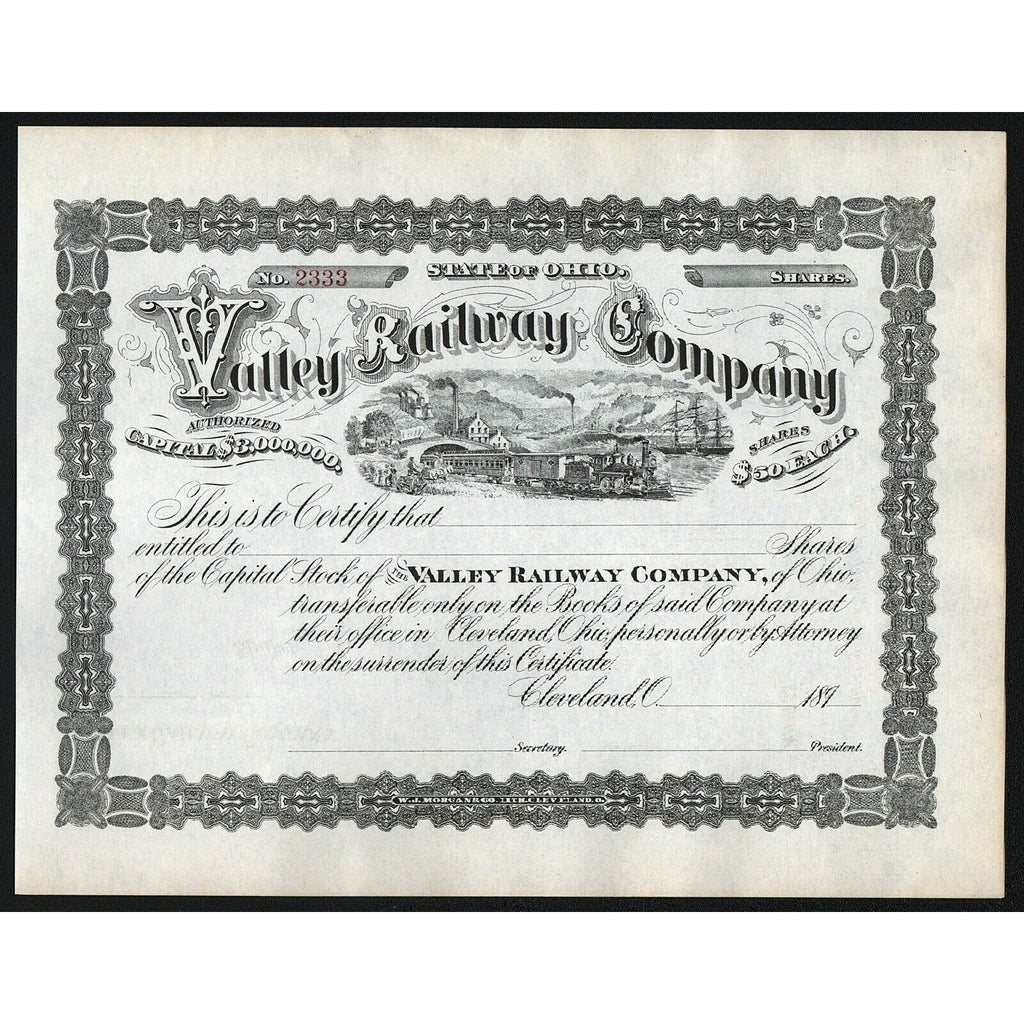 No. 2333
STATE OF OHIO.
SHARES.
Valley Railway Company
AUTHORIZED
CAPITAL $3,000,000.
SHARES
$50 EACH.
This is to Certify that
entitled to Shares
of the Capital Stock of THE VALLEY RAILWAY COMPANY, of Ohio,
transferable only on the Books of said Company at
their office in Cleveland, Ohio, personally or by Attorney
on the surrender of this Certificate.
Cleveland, O. 189
Secretary. President.
W. J. MORGAN & CO. LITH. CLEVELAND. O.